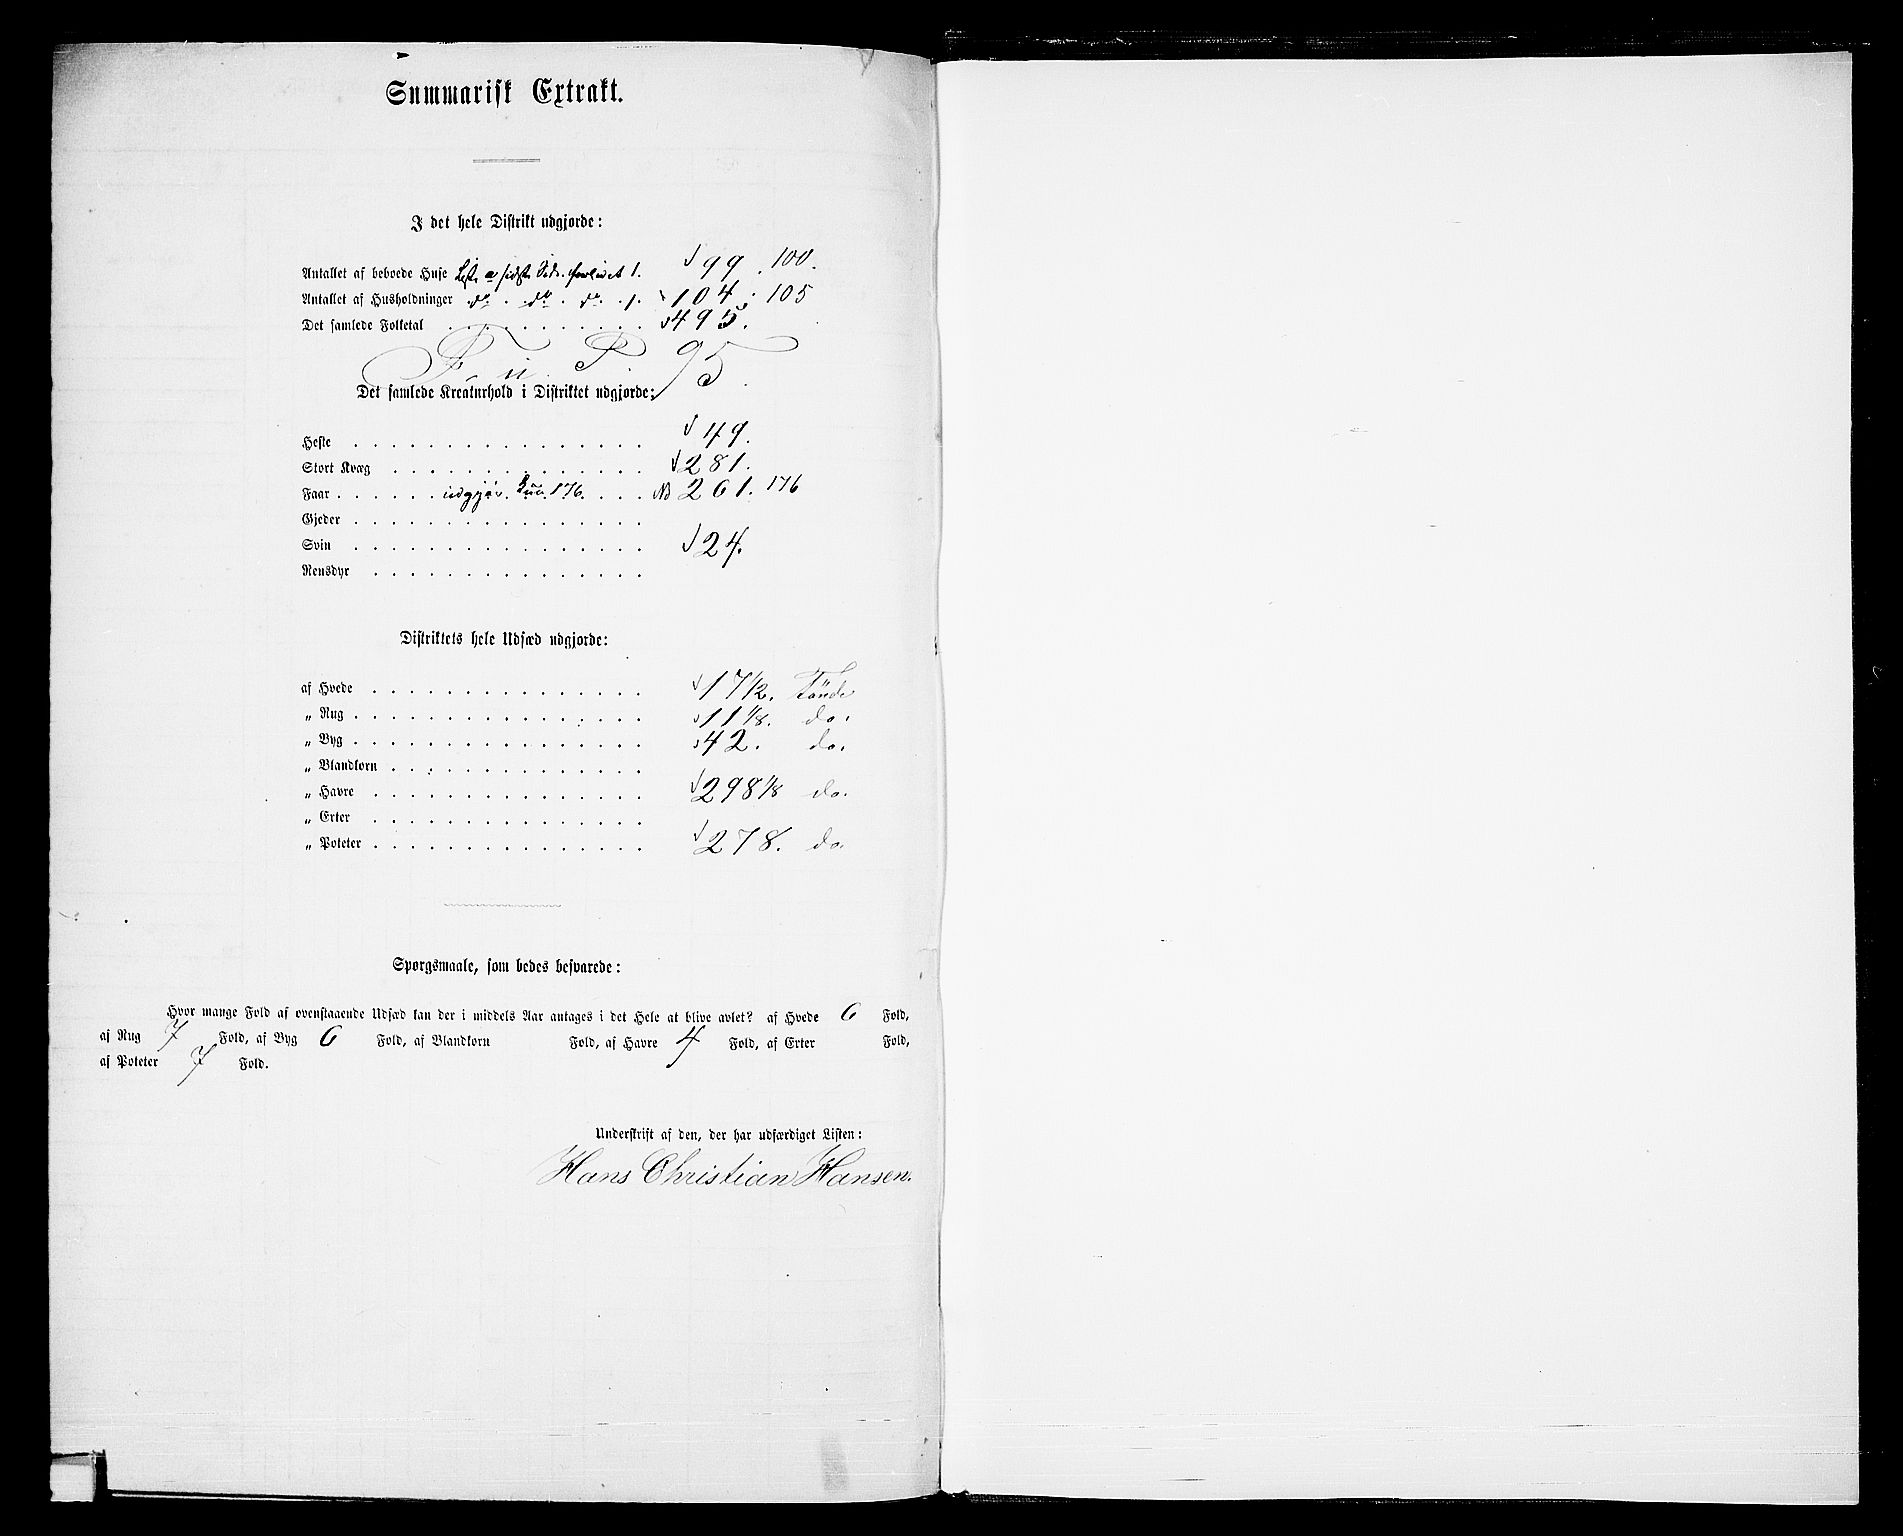 Summarisk Extrakt.
I det hele Distrikt udgjorde:
Antallet af beboede Huse 1. 99. 100.
Antallet af Husholdninger do. do. do. 1. 104. 105
Det samlede Folketal . . . . . . . . . . . 495.
95.
Det samlede Kreaturhold i Distriktet udgjorde:
Heste . . . . . . . . . . . . . . . . 49.
Stort Kvæg . . . . . . . . . . . . . . 281.
Faar . . . . . . udgjør kun 176. . . . . NB 261. 176
Gjeder . . . . . . . . . . . . . . . .
Svin . . . . . . . . . . . . . . . . 24.
Rensdyr . . . . . . . . . . . . . . .
Distriktets hele Udsæd udgjorde:
af Hvede . . . . . . . . . . . . . . . 17 1/2. Tönde
„ Rug . . . . . . . . . . . . . . . . 11 1/8. do.
„ Byg . . . . . . . . . . . . . . . . 42. do.
„ Blandkorn . . . . . . . . . . . . . .
„ Havre . . . . . . . . . . . . . . . 298 1/8 do.
„ Erter . . . . . . . . . . . . . . .
„ Poteter . . . . . . . . . . . . . . . 278. do.
Spørgsmaale, som bedes besvarede:
Hvor mange Fold af ovenstaaende Udsæd kan der i middels Aar antages i det Hele at blive avlet? af Hvede 6 Fold,
af Rug 7 Fold, af Byg 6 Fold, af Blandkorn Fold, af Havre 4 Fold, af Erter Fold,
af Poteter 7 Fold.
Underskrift af den, der har udfærdiget Listen:
Hans Christian Hansen.